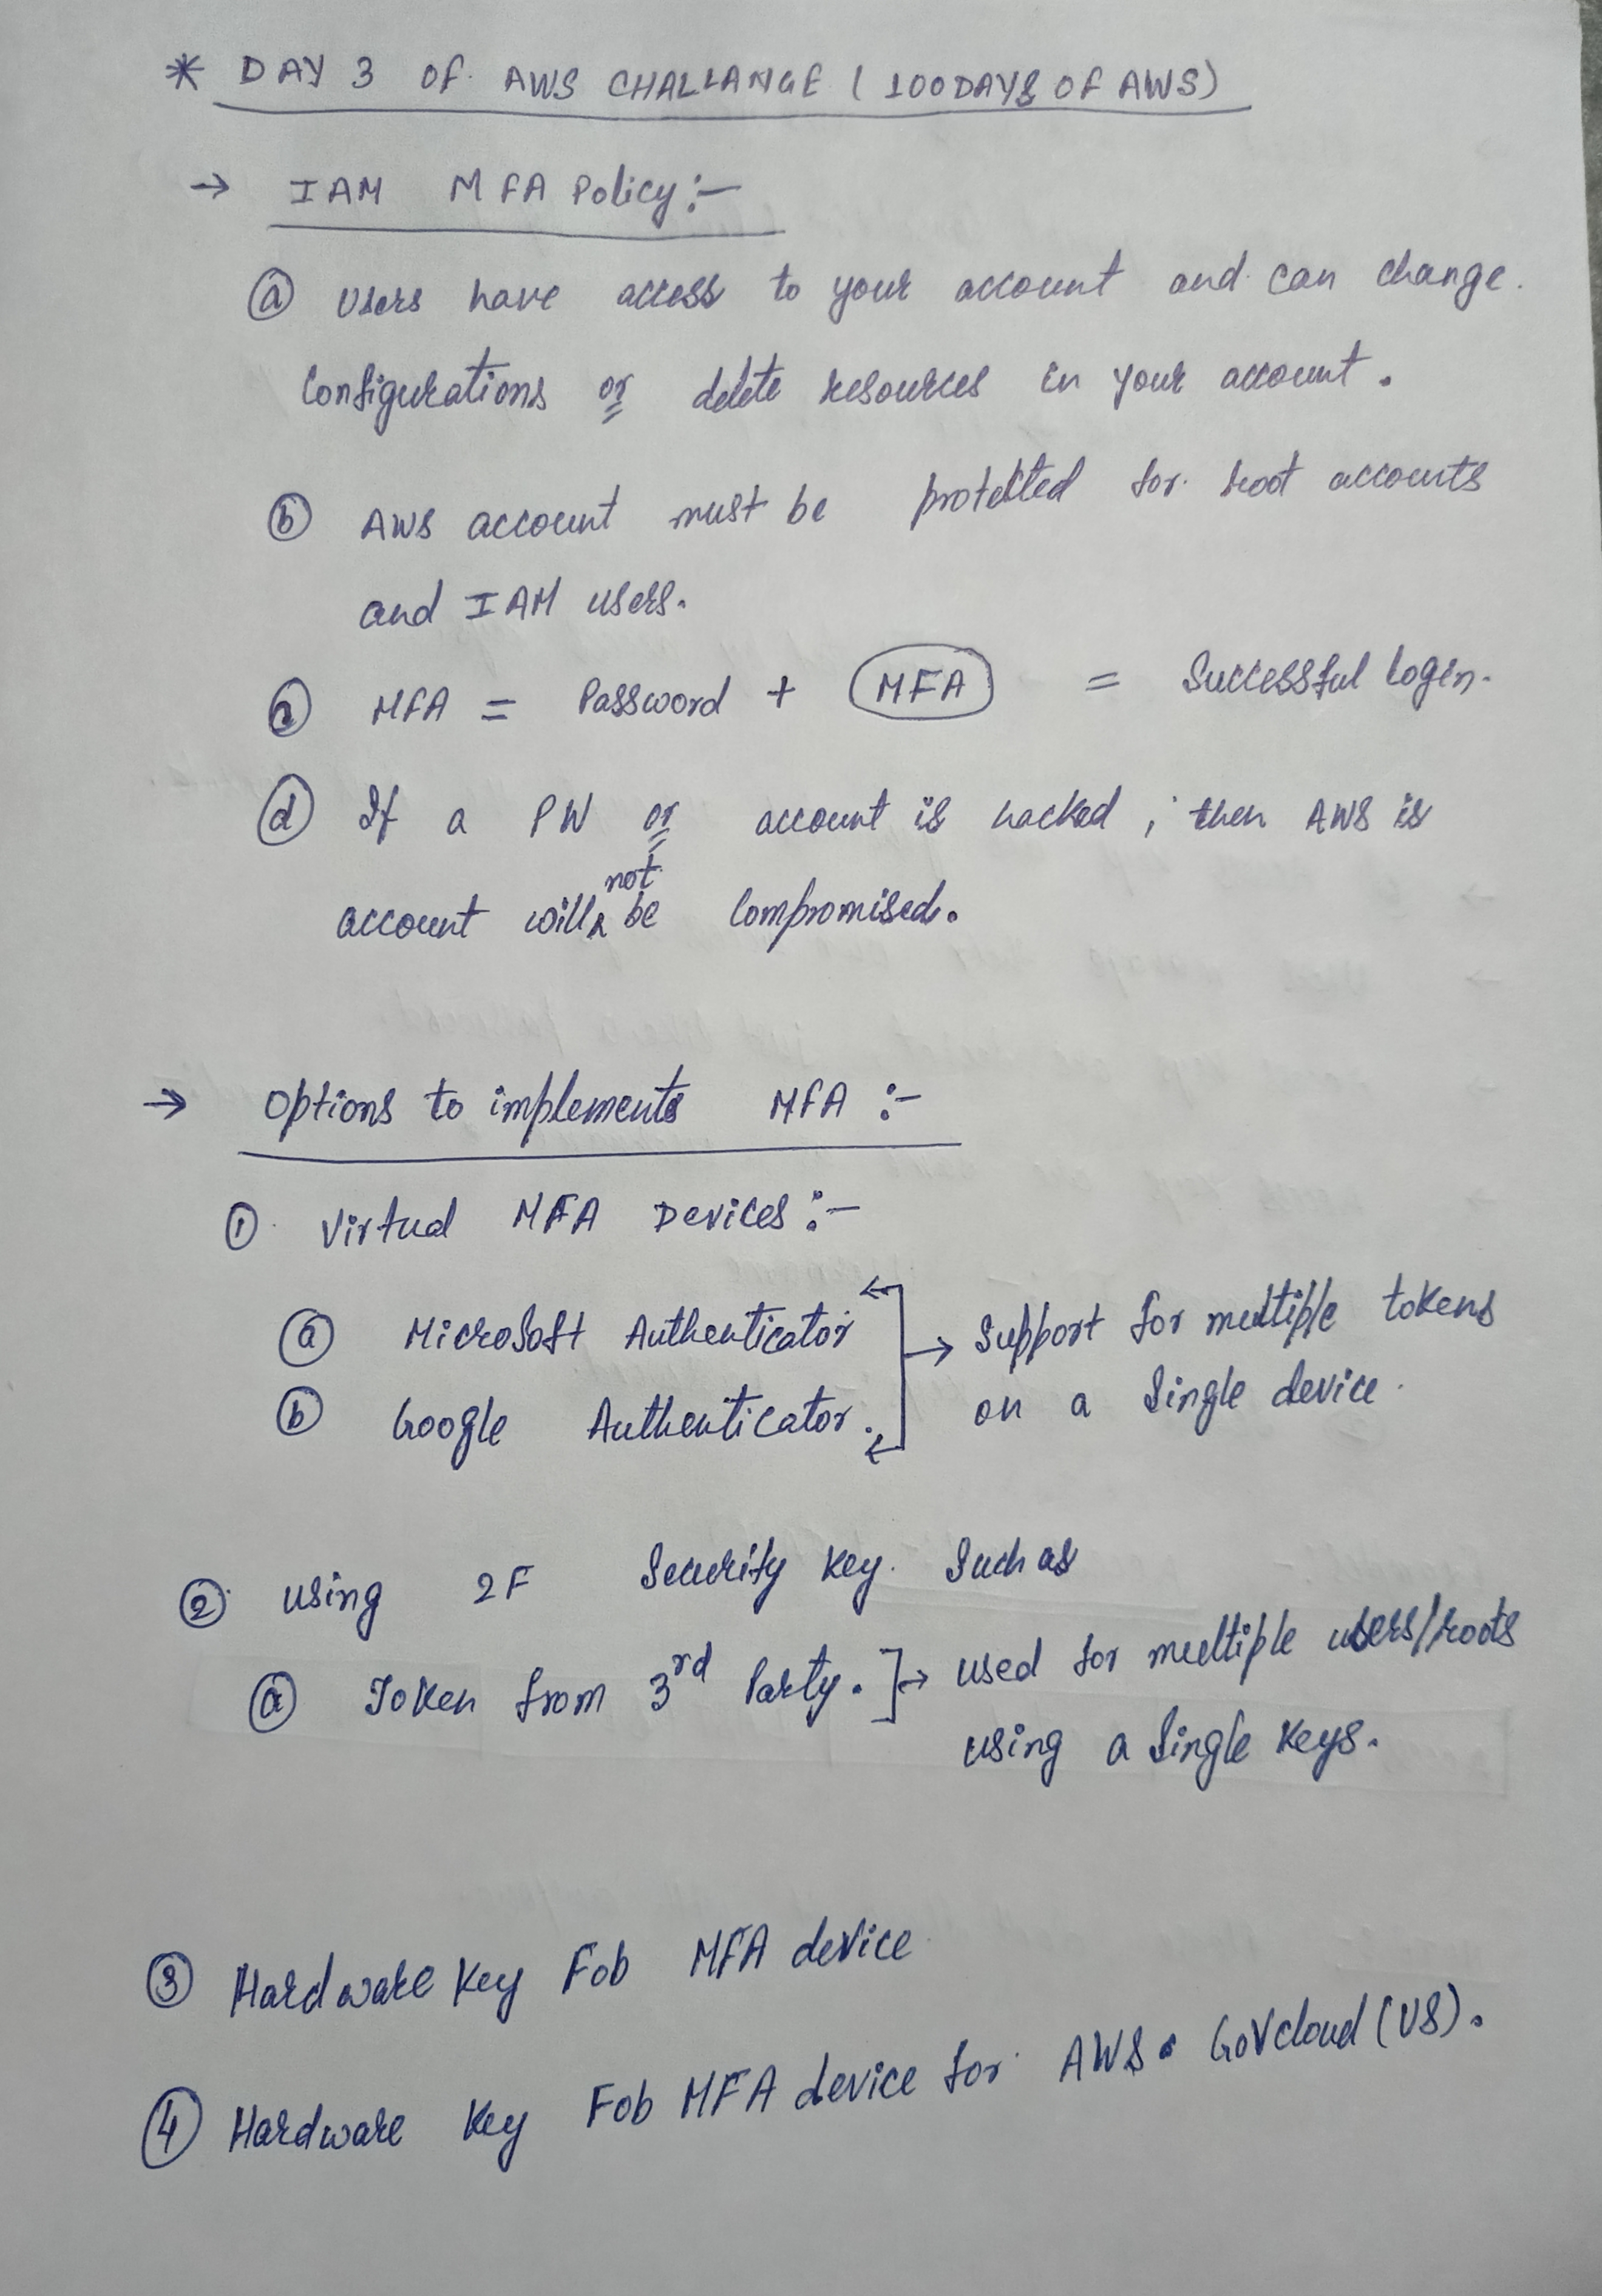 * DAY 3 OF AWS CHALLANGE (100DAYS OF AWS)
→ IAM MFA Policy :-
ⓐ Users have access to your account and can change.
Configurations or delete resources in your account.
ⓑ AWS account must be protected for root accounts
and IAM users.
ⓒ MFA = Password + MFA = Successful login.
ⓓ If a PW or account is hacked, then AWS is
account will not be compromised.
→ Options to implements MFA :-
① Virtual MFA Devices :-
ⓐ Microsoft Authenticator → Support for multiple tokens
ⓑ Google Authenticator. on a single device.
② using 2F Security key. Such as
ⓐ Token from 3rd Party. ]→ used for multiple users/roots
using a Single Keys.
③ Hardware Key Fob MFA device
④ Hardware Key Fob MFA device for AWS GovCloud (US).